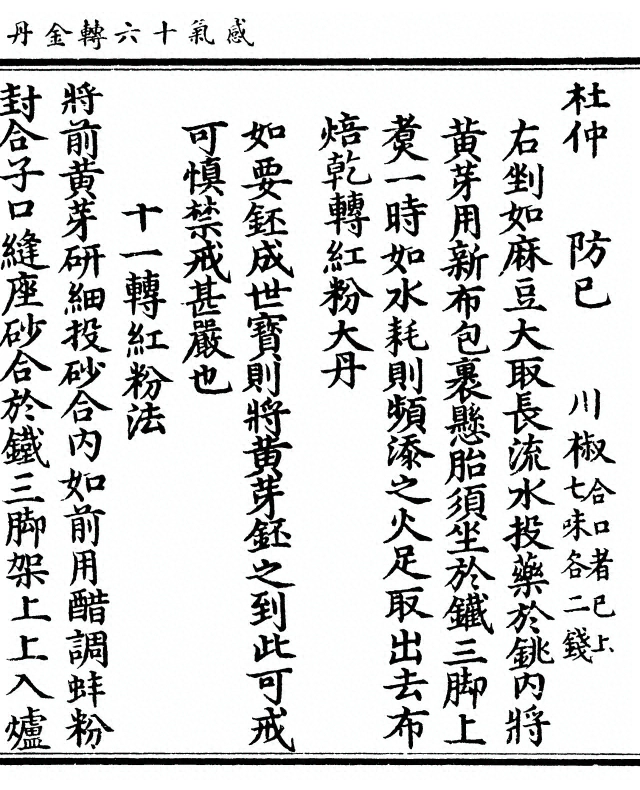 感氣十六轉金丹
杜仲　防已　川椒合口者已上七味各二錢
右剉如麻豆大取長流水投藥於銚內將
黃芽用新布包裹懸胎須坐於鐵三脚上
煑一時如水耗則頻添之火足取出去布
焙乾轉紅粉大丹
如要鉟成世寶則將黃芽鉟之到此可戒
可慎禁戒甚嚴也
十一轉紅粉法
將前黃芽研細投砂合內如前用醋調蚌粉
封合子口縫座砂合於鐵三脚架上上入爐